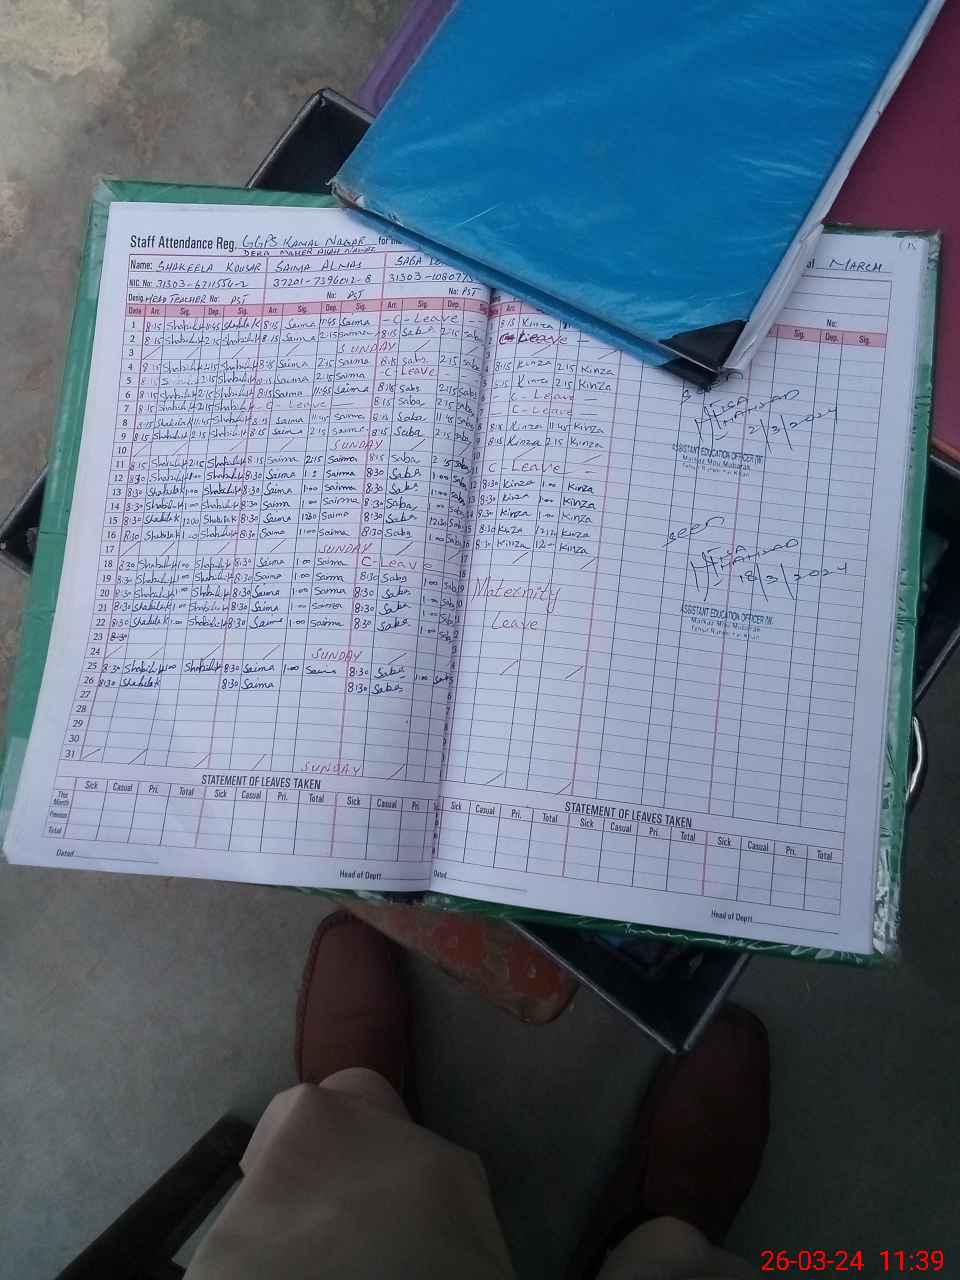 Staff Attendance Reg. GGPS KAMAL NAGAR for the
DERA MAHER ALLAH NAWAZ
MARCH
Name: SHAKEELA KOUSAR SAIMA ALMAS SABA
NIC. No: 31303-6711554-2 37201-7396012-8 31303-10807
Desig. HEAD TEACHER No: PST No: PST No: PST No:
Date Arr. Sig. Dep. Sig. Arr. Sig. Dep. Sig. Arr. Sig. Dep. Arr. Sig. Dep. Sig.
1 8:15 Shakila K 11:45 Shakila K 8:15 Saima 11:45 Saima - C - Leave - 8:15 Kinza
2 8:15 Shakila K 2:15 Shakila K 8:15 Saima 2:15 Saima 8:15 Saba 2:15 Saba C-Leave -
3 SUNDAY
4 8:15 Shakila K 2:15 Shakila K 8:15 Saima 2:15 Saima 8:15 Saba 2:15 Saba 8:15 Kinza 2:15 Kinza
5 8:15 2:15 Shakila K 8:15 Saima 2:15 Saima - C - Leave - 8:15 Kinza 2:15 Kinza
6 8:15 Shakila K 2:15 Shakila K 8:15 Saima 11:45 Saima 8:15 Saba 2:15 Saba - C - Leave -
7 8:15 Shakila K 2:15 Shakila K - C - Leave - 8:15 Saba 2:15 Saba - C - Leave
8 8:15 Shakila K 11:45 Shakila K 8:15 Saima 11:45 Saima 8:15 Saba 11:45 Saba 8:15 Kinza 11:45 Kinza
9 8:15 Shakila K 2:15 Shakila K 8:15 Saima 2:15 Saima 8:15 Saba 2:15 Saba 8:15 Kinza 2:15 Kinza
10 SUNDAY
11 8:15 Shakila K 2:15 Shakila K 8:15 Saima 2:15 Saima 8:15 Saba 2:15 Saba C-Leave -
12 8:30 Shakila K 1:00 Shakila K 8:30 Saima Saima 8:30 Saba 1:00 Saba 8:30 Kinza 1:00 Kinza
13 8:30 Shakila K 1:00 Shakila K 8:30 Saima 1:00 Saima 8:30 Saba 1:00 Saba 8:30 Kinza 1:00 Kinza
14 8:30 Shakila K 1:00 Shakila K 8:30 Saima 1:00 Saima 8:30 Saba 1:00 Saba 8:30 Kinza 1:00 Kinza
15 8:30 Shakila K 12:00 Shakila K 8:30 Saima 12:30 Saima 8:30 Saba 12:30 Saba 8:30 Kinza Kinza
16 8:30 Shakila K 1:00 Shakila K 8:30 Saima 1:00 Saima 8:30 Saba 1:00 Saba 8:30 Kinza Kinza
17 SUNDAY
18 8:30 Shakila K 1:00 Shakila K 8:30 Saima 1:00 Saima C-Leave
19 8:30 Shakila K 1:00 Shakila K 8:30 Saima 1:00 Saima 8:30 Saba 1:00 Saba
20 8:30 Shakila K 1:00 Shakila K 8:30 Saima 1:00 Saima 8:30 Saba 1:00 Saba
21 8:30 Shakila K 1:00 Shakila K 8:30 Saima 1:00 Saima 8:30 Saba 1:00 Saba
22 8:30 Shakila K 1:00 Shakila K 8:30 Saima 1:00 Saima 8:30 Saba 1:00 Saba
Maternity
Leave
23 8:30
24 SUNDAY
25 8:30 Shakila K 1:00 Shakila K 8:30 Saima 1:00 Saima 8:30 Saba 1:00 Saba
26 8:30 Shakila K 8:30 Saima 8:30 Saba
27
28
29
30
31 SUNDAY
No:
Sig. Dep. Sig.
2/3/2024
ASSISTANT EDUCATION OFFICER (W)
Markaz Mou Mubarak
seen
18/3/2024
ASSISTANT EDUCATION OFFICER (W)
Markaz Mou Mubarak
STATEMENT OF LEAVES TAKEN
Sick Casual Pri. Total Sick Casual Pri. Total Sick Casual Pri
This Month
Previous
Total
Dated
Head of Deptt
STATEMENT OF LEAVES TAKEN
Sick Casual Pri. Total Sick Casual Pri. Total Sick Casual Pri. Total
Dated
Head of Deptt
26-03-24 11:39